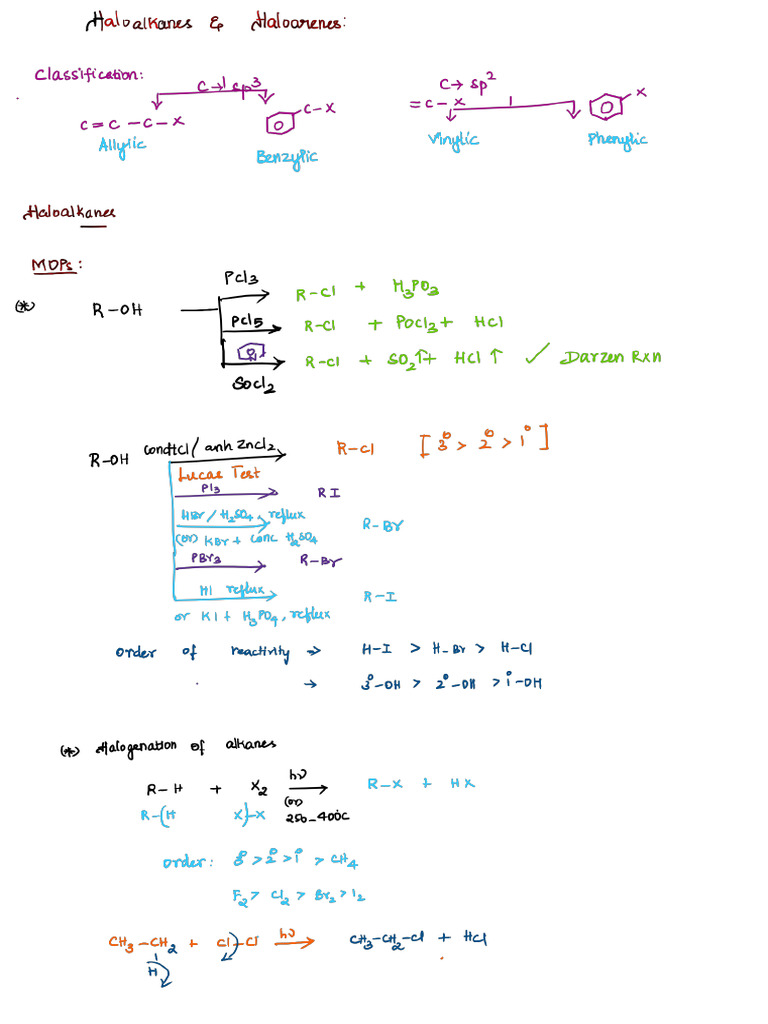 Haloalkanes & Haloarenes:
Classification:
C → sp3
C → sp2
C = C - C - X
C - X
= C - X
X
Allylic
Benzylic
Vinylic
Phenylic
Haloalkanes
MOPs:
(*) R-OH
PCl3 R-Cl + H3PO3
PCl5 R-Cl + POCl3 + HCl
SOCl2 R-Cl + SO2↑ + HCl↑ ✓ Darzen Rxn
R-OH conc HCl / anh ZnCl2 R-Cl [3° > 2° > 1°]
Lucas Test
PI3 RI
HBr / H2SO4, reflux R-Br
(or) KBr + conc H2SO4
PBr3 R-Br
HI reflux R-I
or KI + H3PO4, reflux
order of reactivity → H-I > H-Br > H-Cl
→ 3°-OH > 2°-OH > 1°-OH
(*) Halogenation of alkanes
R-H + X2 hν (or) 250-400°C R-X + HX
R-(H X)-X
order: 3° > 2° > 1° > CH4
F2 > Cl2 > Br2 > I2
CH3-CH2 + Cl-Cl hν CH3-CH2-Cl + HCl
H